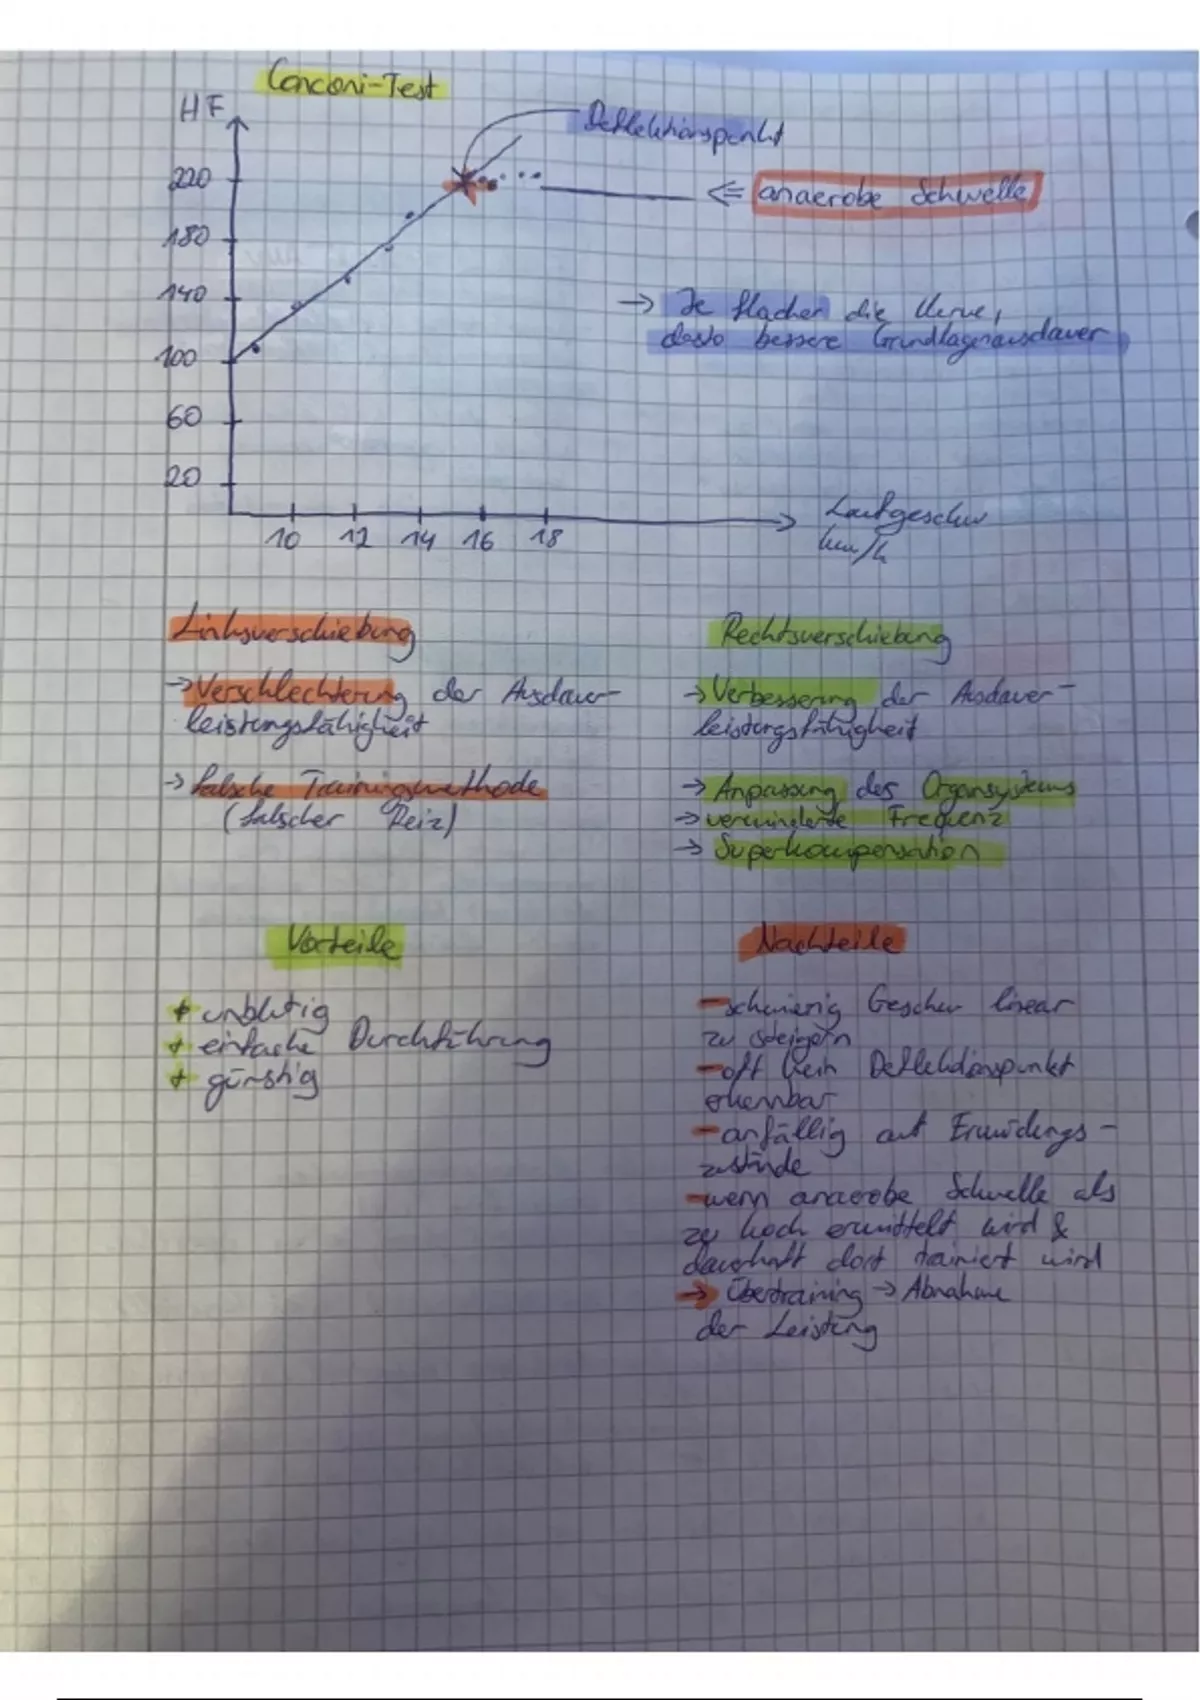 Conconi-Test
HF
Deflektionspunkt
220
<= anaerobe Schwelle
180
140
-> Je flacher die Kurve,
desto bessere Grundlagenausdauer
100
60
20
10 12 14 16 18
Laufgeschw
km/h
Linksverschiebung
-> Verschlechterung der Ausdauer-
leistungsfähigkeit
-> falsche Trainingsmethode
(falscher Reiz)
Rechtsverschiebung
-> Verbesserung der Ausdauer-
leistungsfähigkeit
-> Anpassung des Organsystems
-> verminderte Frequenz
-> Superkompensation
Vorteile
+ unblutig
+ einfache Durchführung
+ günstig
Nachteile
- schwierig Geschw linear
zu steigern
- oft kein Deflektionspunkt
erkennbar
- anfällig auf Ermüdungs-
zustände
- wenn anaerobe Schwelle als
zu hoch ermittelt wird &
dauerhaft dort trainiert wird
-> Übertraining -> Abnahme
der Leistung